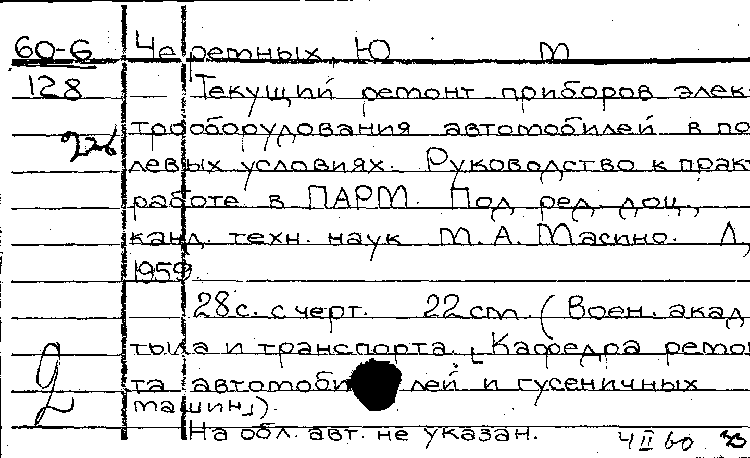 60-6 Черемных, Ю М
128 Текущий ремонт приборов элек-
226 трооборудования автомобилей в по
левых условиях. Руководство к практ
работе в ПАРМ. Под ред. доц.,
канд. техн. наук М. А. Масино. Л,
1959.
28 с. с черт. 22 cm. (Воен. акад
тыла и транспорта. Кафедра ремон
та автомобилей и гусеничных
2 машин).
На обл. авт. не указан.
4 II 60